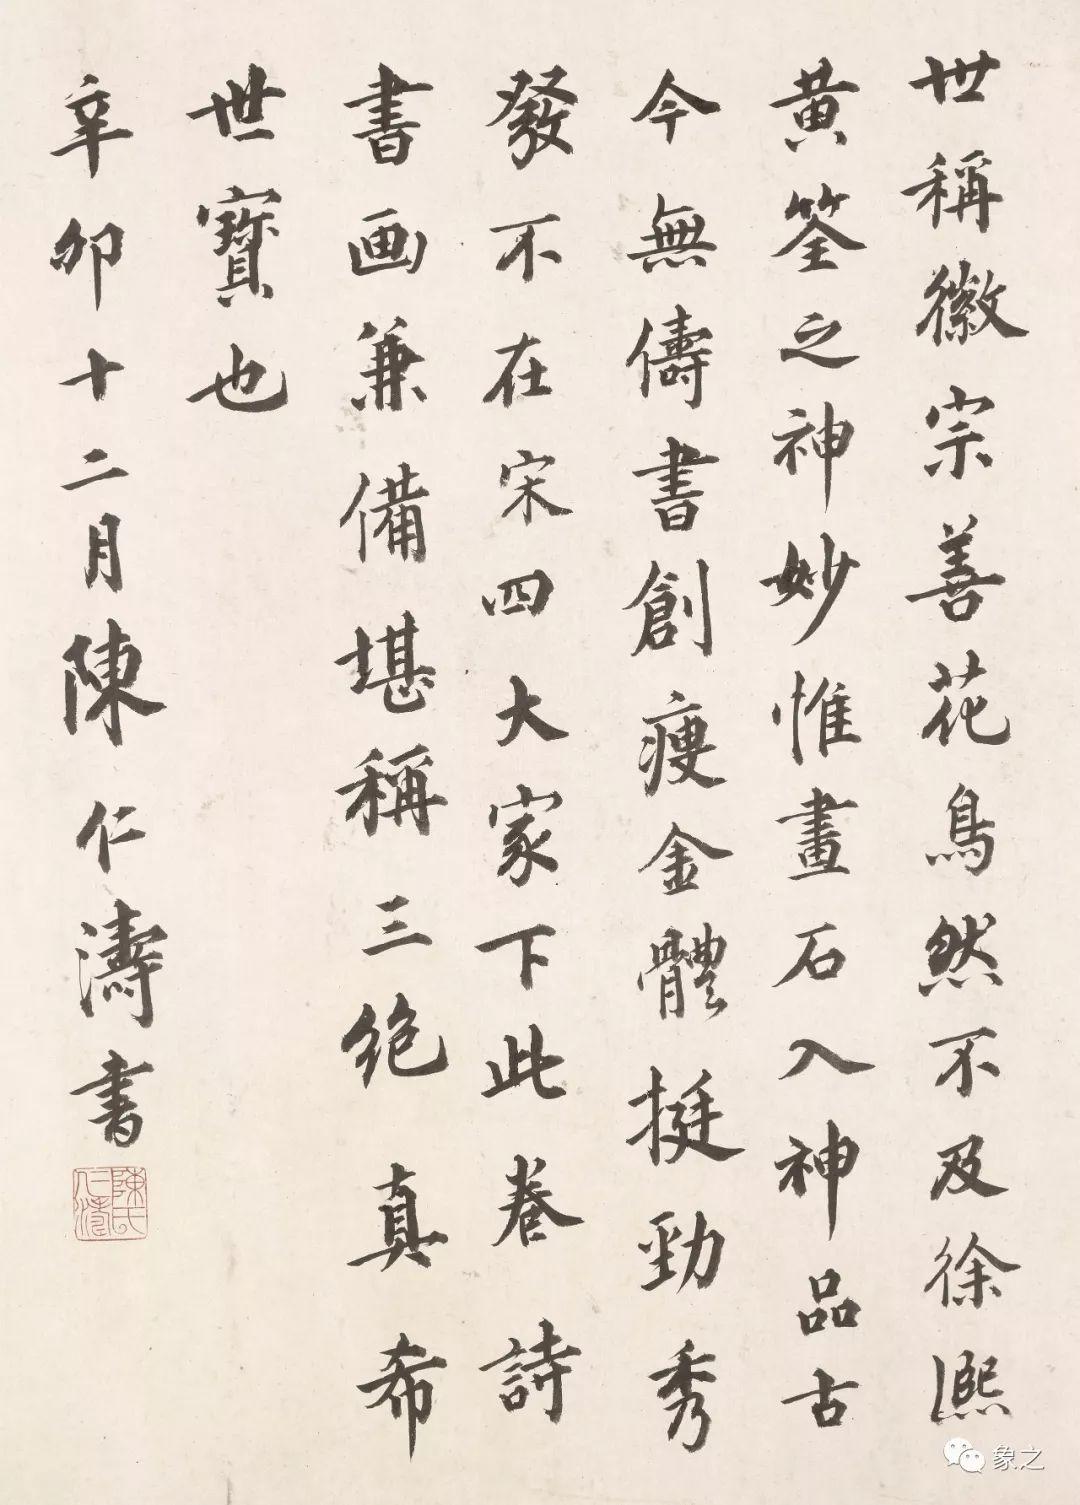 世稱徽宗善花鳥然不及徐熙
黃筌之神妙惟畫石入神品古
今無儔書創瘦金體挺勁秀
發不在宋四大家下此卷詩
書画兼備堪稱三絕真希
世寶也
辛卯十二月陳仁濤書
陳氏仁濤
象之